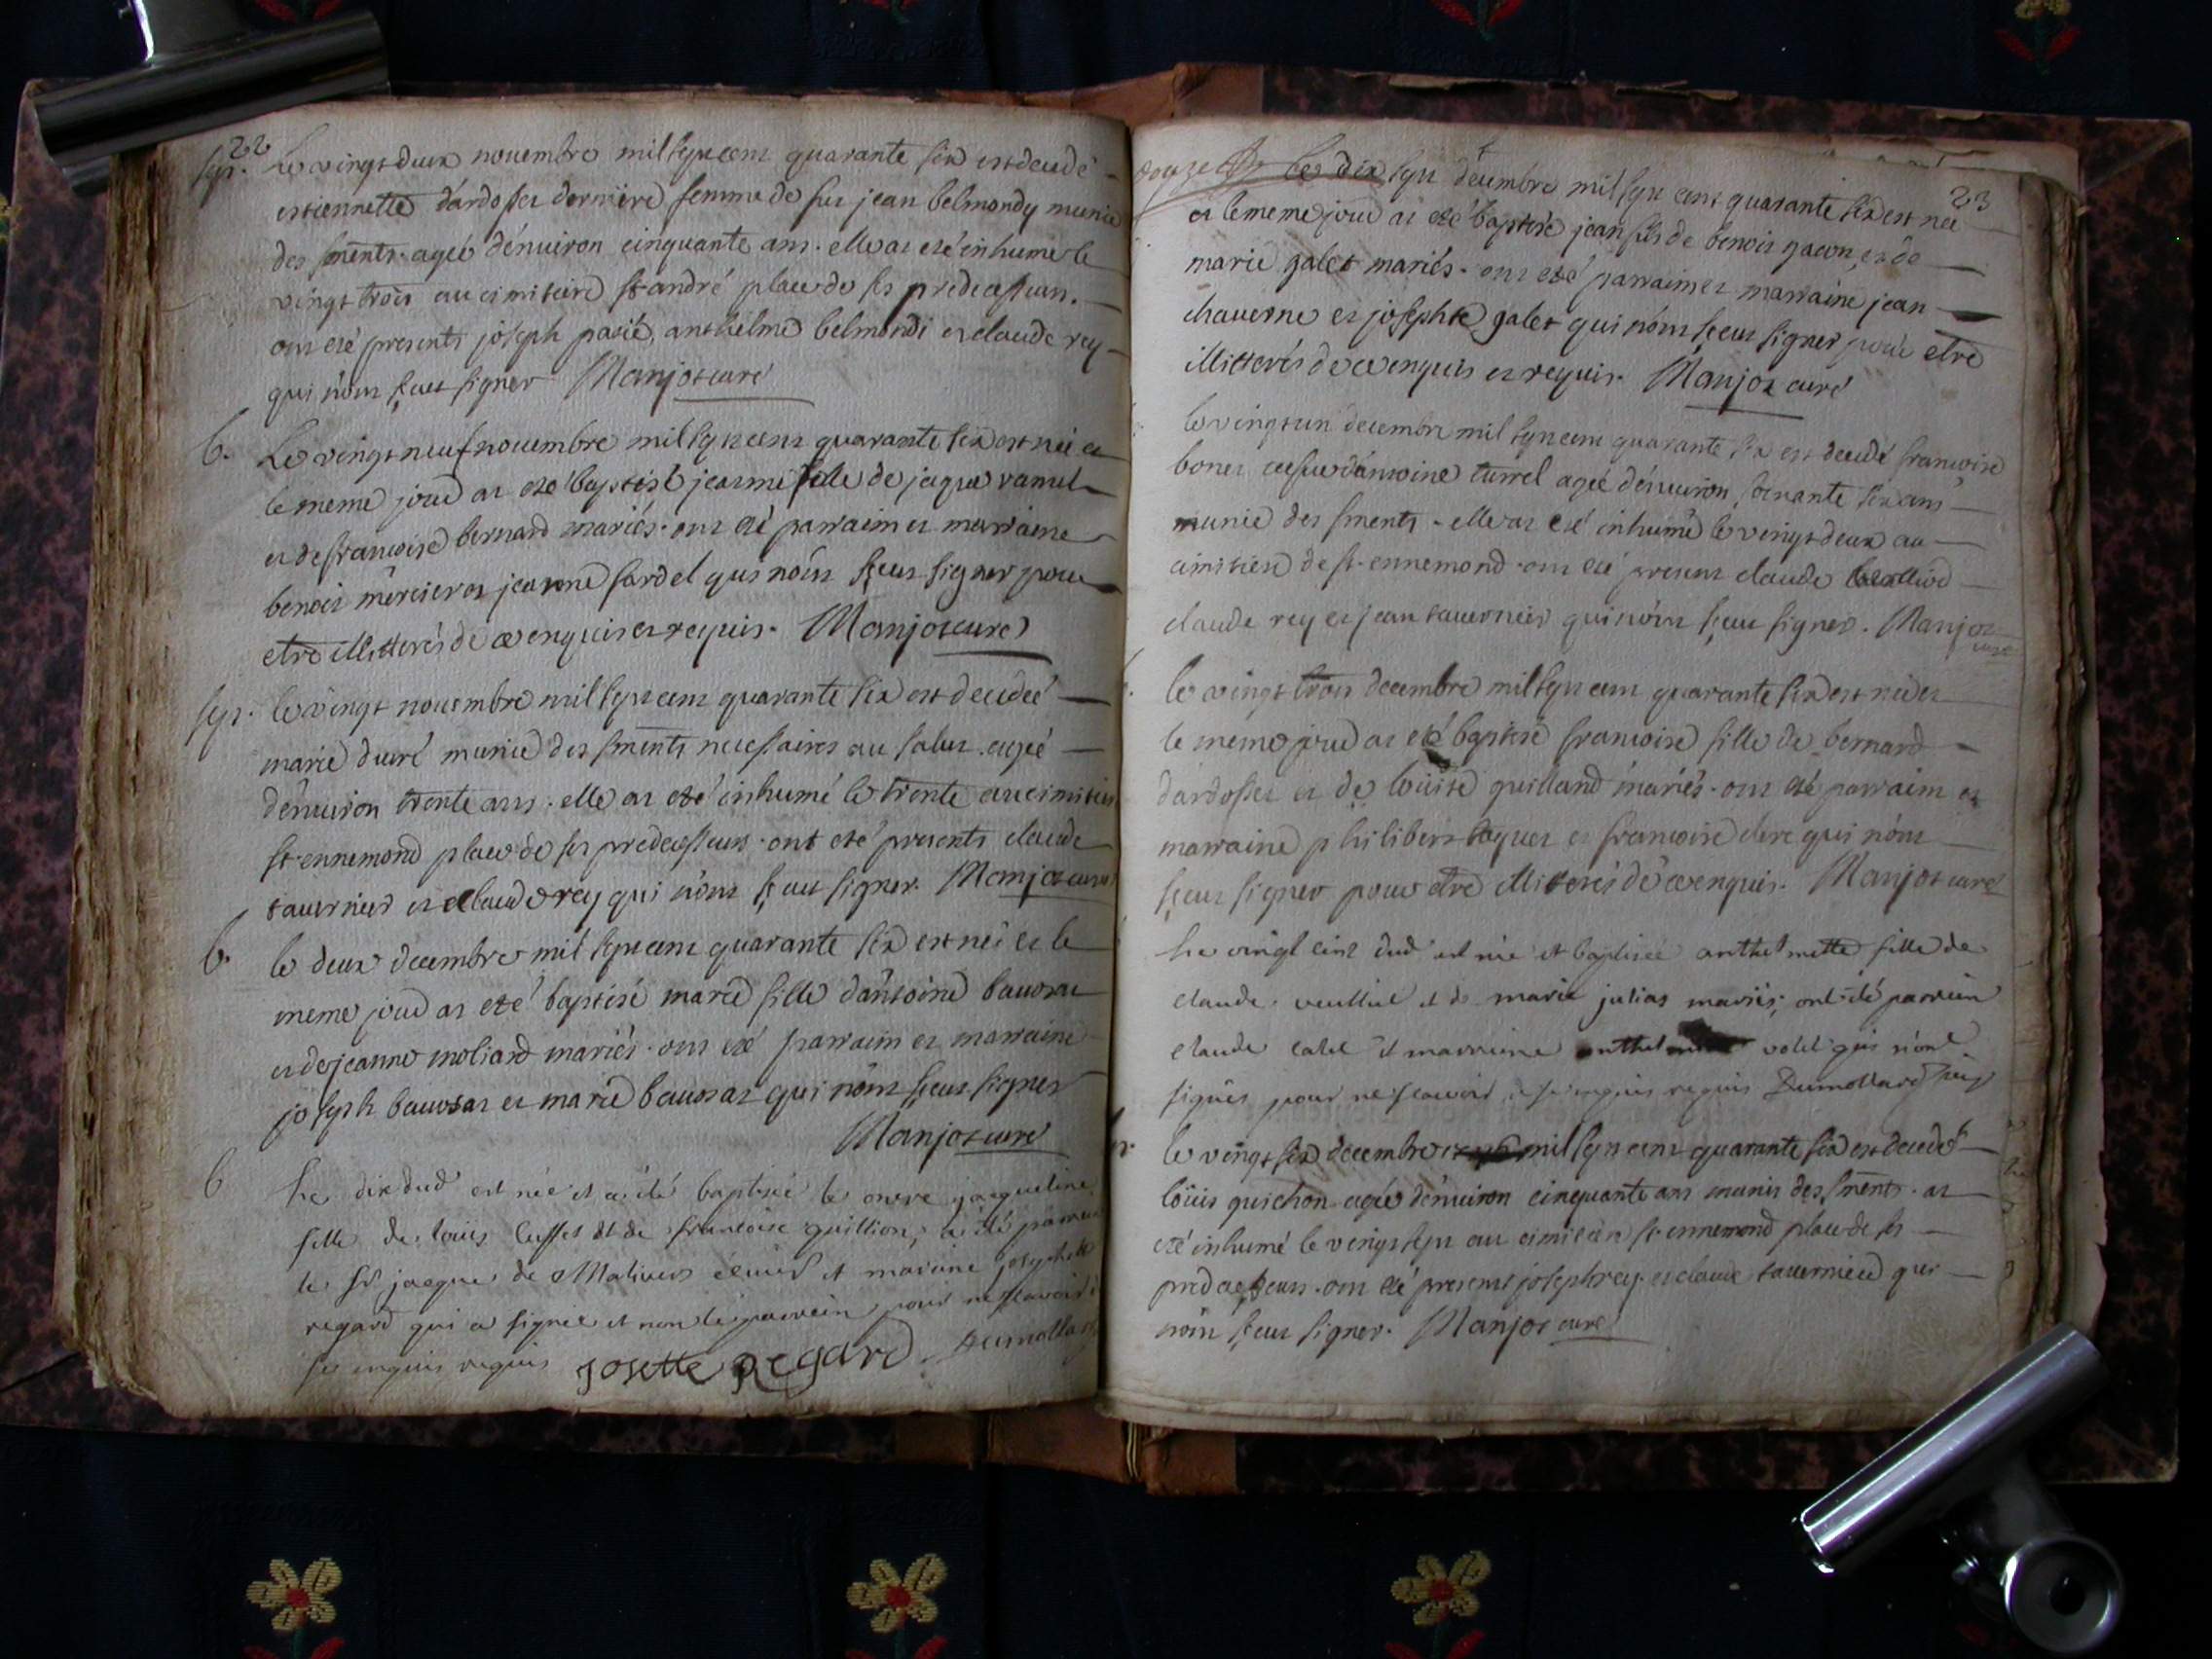 22
sep. le vingt deux novembre mil sept cent quarante six est decedé
estiennette dardosset derniere femme de feu jean belmondy munie
des sments. ageé d'environ cinquante ans. elle at eté inhume le
vingt trois au cimitaire st andré place de ses predecesseurs.
ont eté presents joseph pasié, anthelme belmondi et claude rey
qui n'ont sceut signer Manjot curé
b. Le vingt neuf novembre mil sept cent quarante six est neé et
le meme jour at eté baptisé jeanne fille de jaque
et de francoise bernard mariés. ont eté parraim et marraine
benoit mercier et jeanne fardel qui n'ont sceut signer pour
etre illitterés de ce enquis et requis. Manjot curé
sep. le vingt novembre mil sept cent quarante six est decedeé
marie duré munie des sments necessaires au salut. ageé
d'environ trente ans. elle at eté inhumé le trente au cimitier
st ennemond place de ses predecesseurs. ont eté presents claude
tavernier et claude rey qui n'ont sceut signer. Manjot curé
b. le deux decembre mil sept cent quarante six est neé et le
meme jour at eté baptisé marie fille d'antoine
et de jeanne moliard mariés. ont eté parraim et marraine
joseph et marie qui n'ont sceut signer
Manjot curé
b Le dix dud est neé et a été baptisée le onze jacqueline
fille de louis et de francoise quillion; a été parrain
le Sr jaque de Malivers écuier et maraine josephette
regard qui a signée et non le parrein pour ne scavoir
se enquis requis josette Regard Dumollard
23
Le dix sept decembre mil sept cent quarante six est neé
et le meme jour at eté baptisé jean fils de benoit gacon et de
marie galet mariés. ont eté parraim et marraine jean
chaverne et josephte galet qui n'ont sceut signer pour etre
illitterés de ce enquis et requis. Manjot curé
le vingt un decembre mil sept cent quarante six est decedé francoise
bonet d'antoine turrel ageé d'environ soixante six ans
munie des sments. elle at eté inhumé le vingt deux au
cimitiere de st. ennemond. ont eté present claude
claude rey et jean tavernier qui n'ont sceut signer. Manjot
curé
le vingt trois decembre mil sept cent quarante six est neé et
le meme jour at eté baptisé francoise fille de bernard
dardosset et de loüise quilland mariés. ont eté parraim et
marraine philibert et francoise clerc qui n'ont
sceut signer pour etre illiterés de ce enquis. Manjot curé
Le vingt cinq dud est née et baptisée anthelmette fille de
claude veullet et de marie julias mariés; ont été parrein
claude calet et marreine anthelmette volet qui n'ont
signés pour ne scavoir de se enquis requis Dumollard
le vingt six decembre mil sept cent quarante six est decedé
loüis quichon ageé d'environ cinquante ans munis des sments. at
eté inhumé le vingt sept au cimitiere st ennemond place de ses
predecesseurs. ont eté present joseph rey et claude tavernier qui
n'ont sceut signer. Manjot curé